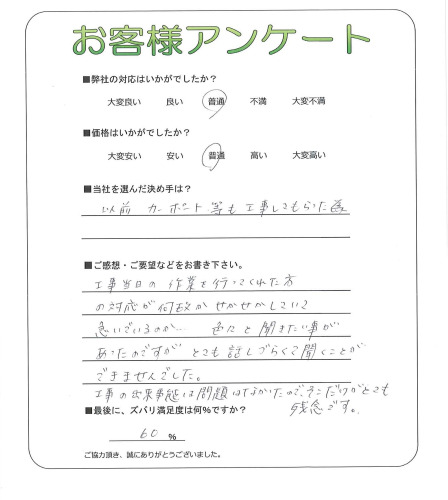 お客様アンケート
■弊社の対応はいかがでしたか?
大変良い 良い 普通 不満 大変不満
■価格はいかがでしたか?
大変安い 安い 普通 高い 大変高い
■当社を選んだ決め手は?
以前 カーポート等も工事してもらった為
■ご感想・ご要望などをお書き下さい。
工事当日の作業を行ってくれた方
の対応が何故かせかせかしていて
急いでいるのか… 色々と聞きたい事が
あったのですが とても話しづらくて聞くことが
できませんでした。
工事の出来事態は問題はなかたので、そこだけがとても
残念です。
■最後に、ズバリ満足度は何%ですか?
60 %
ご協力頂き、誠にありがとうございました。